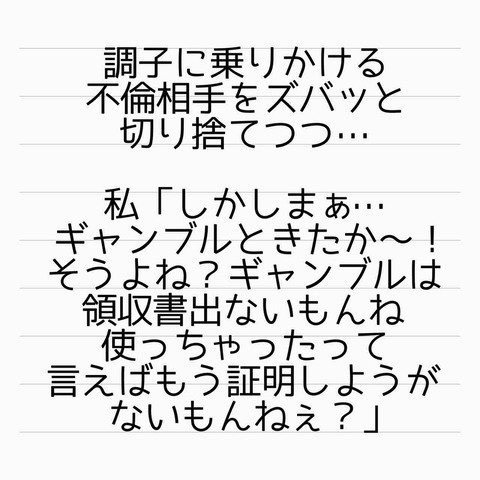 調子に乗りかける
不倫相手をズバッと
切り捨てつつ…
私「しかしまぁ…
ギャンブルときたか〜！
そうよね？ギャンブルは
領収書出ないもんね
使っちゃったって
言えばもう証明しようが
ないもんねぇ？」